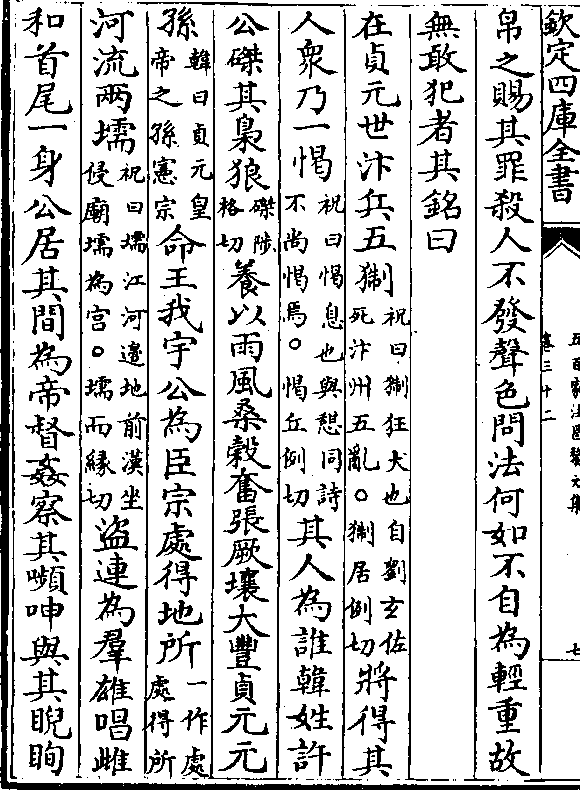 欽定四庫全書
卷三十二
七
帛之賜其罪殺人不發聲色問法何如不自為輕重故
無敢犯者其銘曰
在貞元世汴兵五猘祝曰猘狂犬也自劉玄佐死汴州五亂。猘居例切將得其
人衆乃一愒祝曰愒息也與憩同詩不尚愒焉。愒丘例切其人為誰韓姓許
公磔其梟狼磔陟格切養以雨風桑穀奮張厥壤大豐貞元元
孫韓曰貞元皇帝之孫憲宗命正我宇公為臣宗處得地所一作處處得所
河流兩壖祝曰壖江河邊地前漢坐侵廟壖為宫。壖而緣切盜連為羣雄唱雌
和首尾一身公居其間為帝督姦察其嚬呻與其睨眴